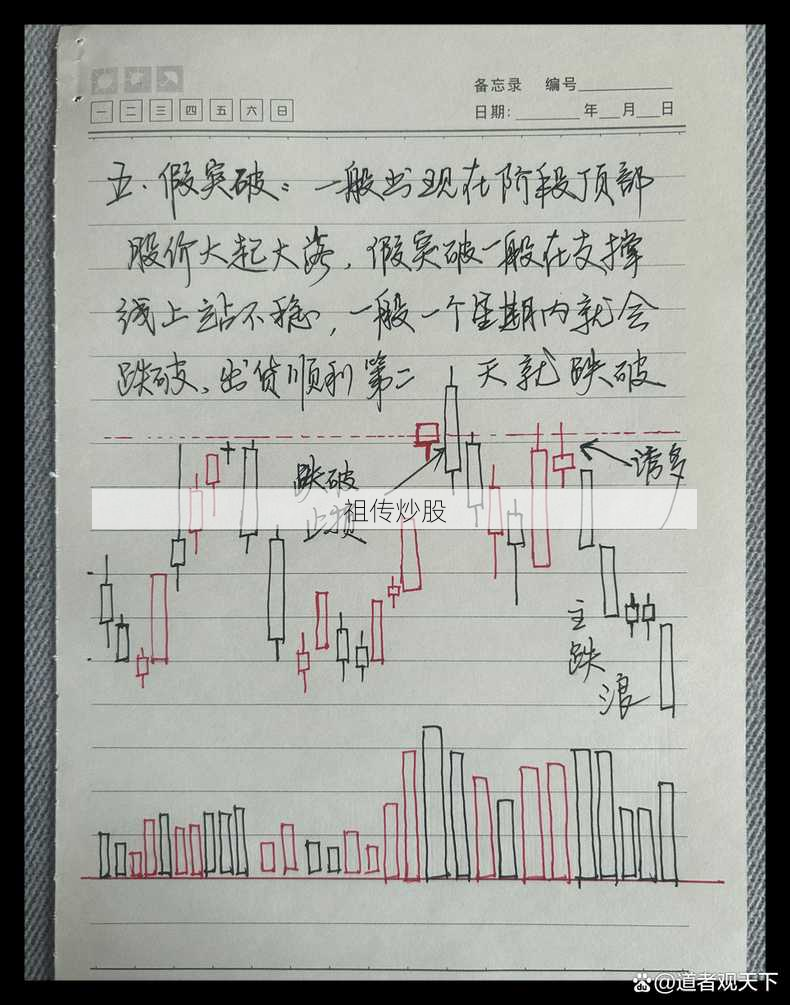 备忘录 编号
一 二 三 四 五 六 日
日期: 年 月 日
五.假突破:一般出现在阶段顶部
股价大起大落,假突破一般在支撑
线上站不稳,一般一个星期内就会
跌破、出货顺利第二 天就跌破
跌破
止损
诱多
祖传炒股
主
跌
浪
百度 @道者观天下